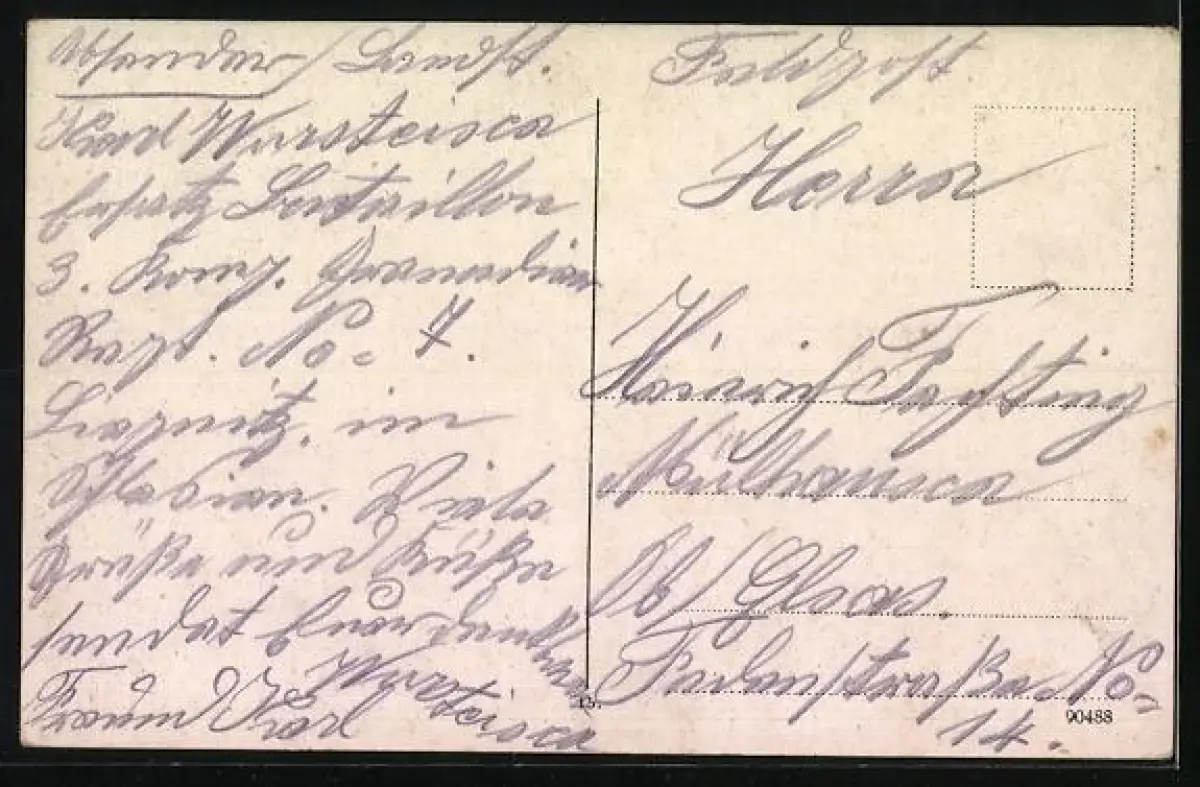 Absender / Landst.
Karl Wursteisca
Ersatz Bataillon
3. Komp. Grenadier
Regt. No= 7.
Liegnitz. im
Schlesien. Viele
Grüße und Küße
sendet Euer dankbarer
Freund Karl Wursteisca
Feldpost
Herrn
Heinrich
Mülhausen
Ob/Elsas.
No=
14.
15.
90488